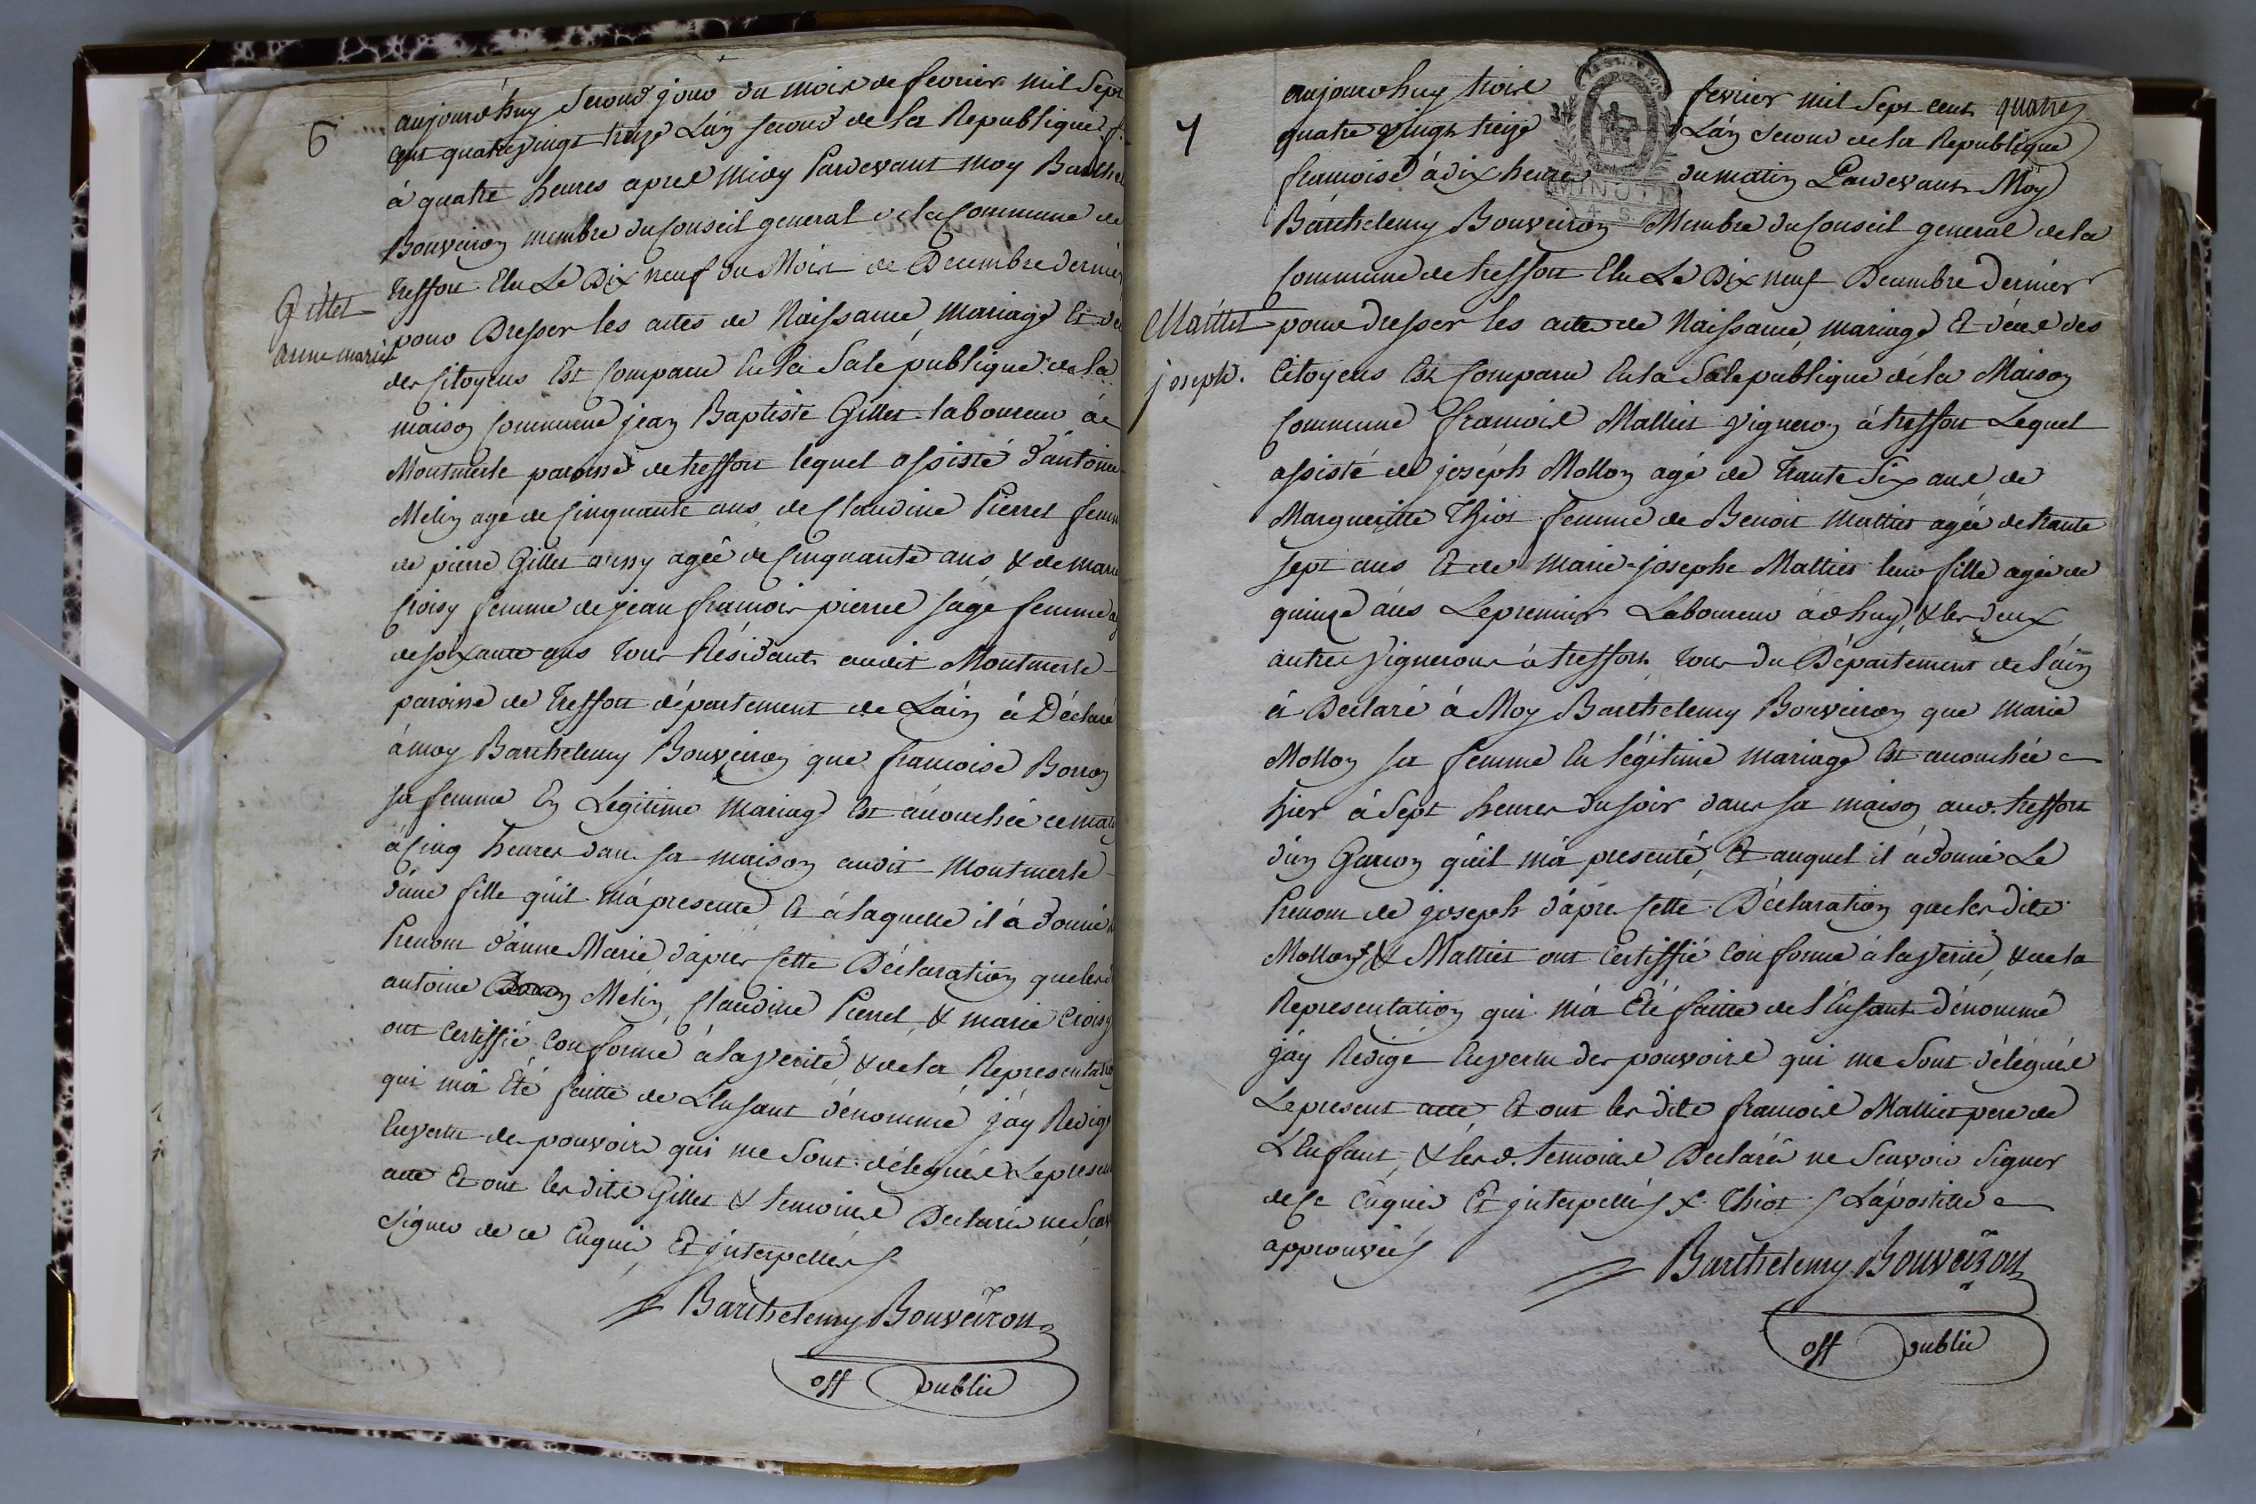 6
aujourdhuy Second jour du mois de fevrier mil Sept
cent quatrevingt treize Lán second de la Republique
á quatre heures apres midy Pardevant moy Barthel
Bouveiron membre du Conseil general de la Commune de
treffort Elu Le Dix neuf du Mois de Decembre dernier
Gillet
anne marie
pour Dresser les actes de Naissance, mariage Et de
des Citoyens Est Comparu En la Sale publique de la
maison Commune jean Baptiste Gillet laboureur á
Montmerle paroisse de treffort lequel assisté d'antoine
Melin agé de Cinquante ans, de Claudine Pierrel femme
de pierre Gillet aussy agée de Cinquante ans & de marie
Croisy femme de jean francois pierrel sage femme ag
de soixante ans tous Résidants audit Montmerle
paroisse de treffort département de Láin á Déclaré
á moy Barthelemy Bouveiron que francoise Borron
sa femme En Legitime mariage Est áccouchée ce matin
á Cinq heures dans sa maison audit montmerle
d'une fille quil má presenté Et á laquelle il á donné
Prenom d'anne Marie d'apres Cette Déclaration que les d
antoine Melin, Claudine Pierrel, & marie Croisy
ont Certiffié Conforme á la Verité & de la Representation
qui má Eté faitte de L'Enfant dénommé j'áy Redigé
En vertu des pouvoirs qui me Sont délégués Le present
acte Et ont les dits Gillet & temoins Déclarés ne Scav
Signer de ce Enquis Et jnterpellés
Barthelemy Bouveiron
off public
7
aujourdhuy trois fevrier mil Sept cent quatre
quatre vingt treize Lán Second de la Republique
francoise á dix heures du matin Pardevant Moy
Barthelemy Bouveiron Membre du Conseil general de la
Commune de treffort Elu Le Dix neuf Decembre dernier
Mattiet
joseph.
pour dresser les acte de Naissance, mariage Et décès des
Citoyens Est Comparu En la Sale publique de la Maison
Commune francois Mattiet vigneron á treffort Lequel
assisté de joséph Mollon agé de Trante Six ans de
Margueritte Thiot femme de Benoit Mattiet agée de trante
sept ans Et de Marie-josephe Mattiet leur fille agée de
quinze áns Le premier Laboureur á dhuy, & les deux
autres vignerons á treffort tous du Département de l'áin
á Declaré á Moy Barthelemy Bouveiron que marie
Mollon sa femme En légitime mariage Est accouchée
hier á Sept heures du soir dans sa maison aud. treffort
d'un Garcon qu'il má presenté, Et auquel il á donné Le
Prenom de joseph d'apres Cette Déclaration que les dits
Mollon & Mattiet ont Certiffié Conforme á la Verité, & de la
Representation qui má Eté faitte de l'Enfant dénommé
j'áy Rédigé En vertu des pouvoirs qui me Sont délégués
Le present acte Et ont les dits francois Mattiet pere de
L'Enfant, & les d. temoins Declarés ne Scavoir Signer
de Ce Enquis Et jnterpellés x Thiot L'apostille
approuvées
Barthelemy Bouveiron
off public